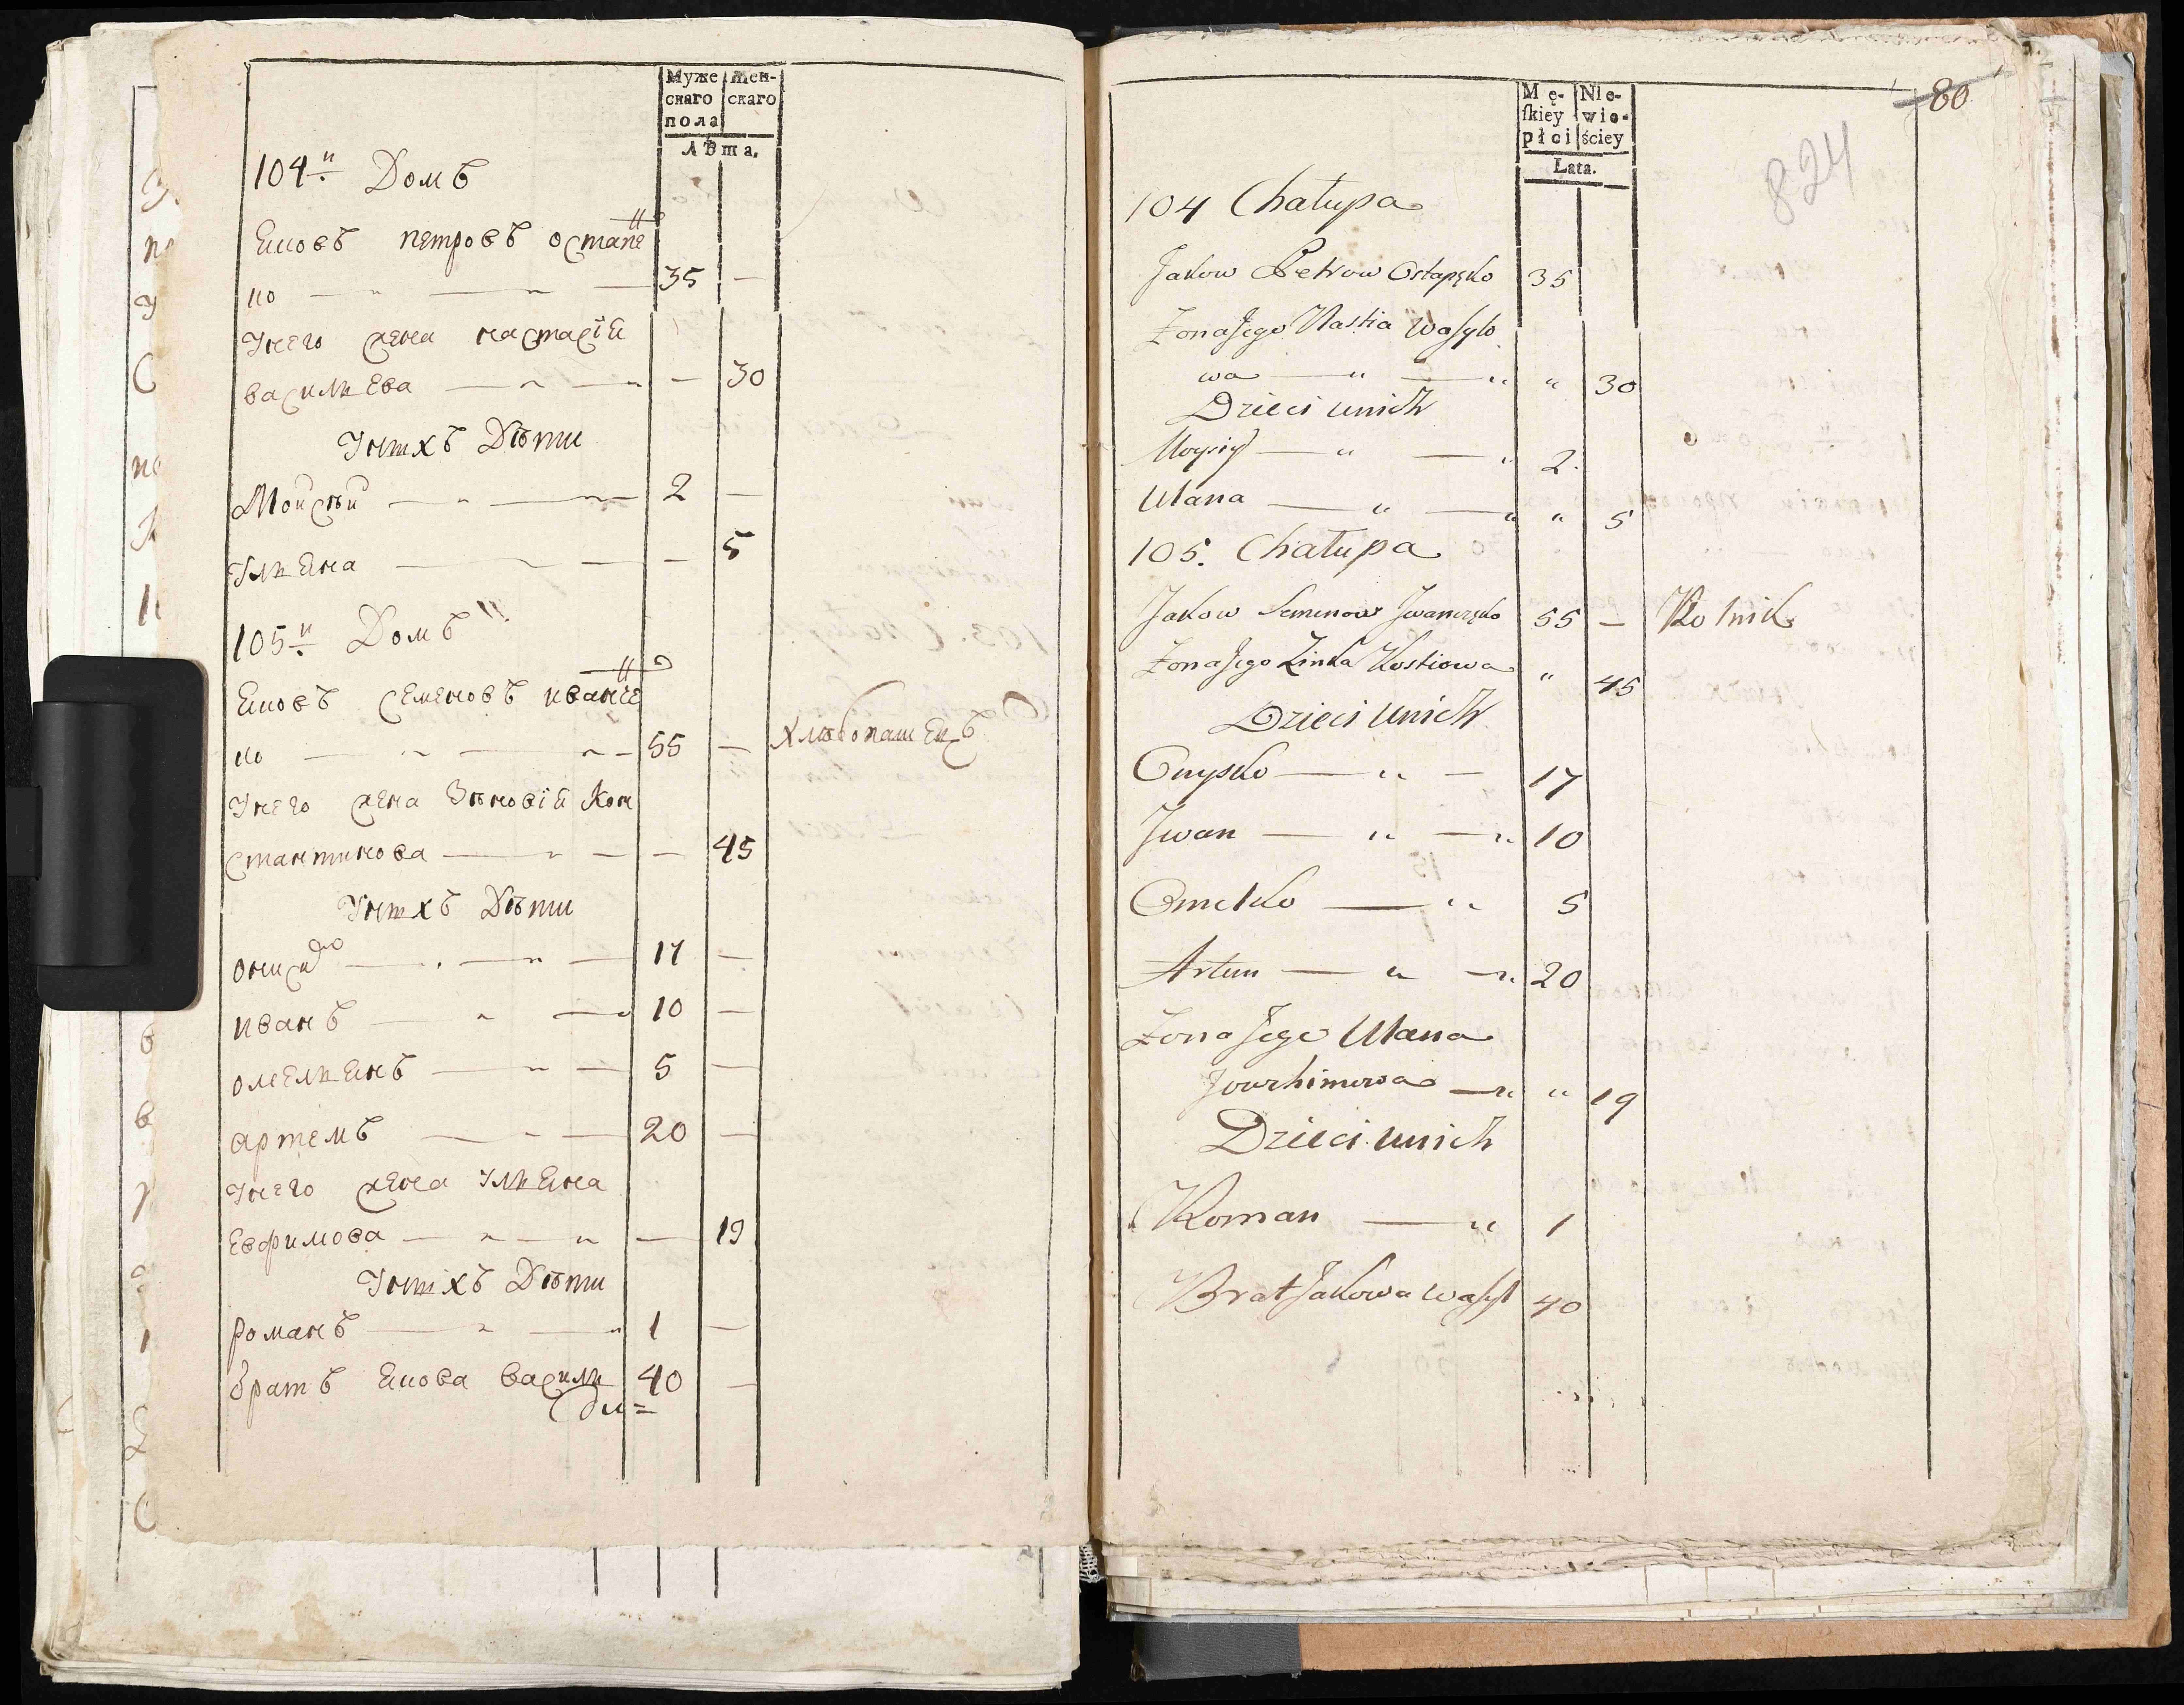 Муже Жен-
скаго скаго
пола
Лѣта.
104й Домъ
Яковъ петровъ остапен
ко 35 —
Унего жена настасія
василиева — 30
Унихъ Дѣти
Мойсѣй 2 —
Улияна — 5
105й Домъ
Яковъ семеновъ иванчен
ко 55 — хлѣбопашецъ
Унего жена Зѣновія Кон
стантинова — 45
Унихъ Дѣти
17 —
иванъ 10 —
омелиянъ 5 —
артемъ 20 —
Унего жена Улияна
Евфимова — 19
Унихъ Дѣти
романъ 1 —
братъ Якова васили 40 —
Mę- Nie-
ſkiey wie-
płci ściey
Lata.
80
824
104 Chałupa
Jakow Petrow Ostapęko 35
Żona Jego Nastia Wasylo
wa " 30
Dzieci unich
Moysiy 2.
Ulana " 5
105. Chałupa
Jakow Semenow Jwanczęko 55 — Rolnik
Żona Jego Zinka Kostiowa " 45
Dzieci Unich
Onysko 17
Jwan 10
Omelko 5
Artem 20
Żona Jego Ulana
Jowchimowa " 19
Dzieci unich
Roman 1
Brat Jakowa Wasyl 40